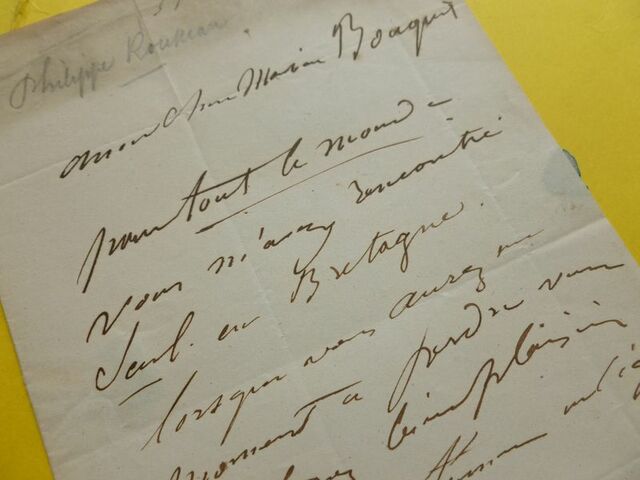 Philippe Rousseau
mon cher Monsieur Bouquet
pour tout le monde
vous m'avez rencontré
seul en Bretagne.
lorsque vous aurez un
moment a perdre vous
bien plaisir